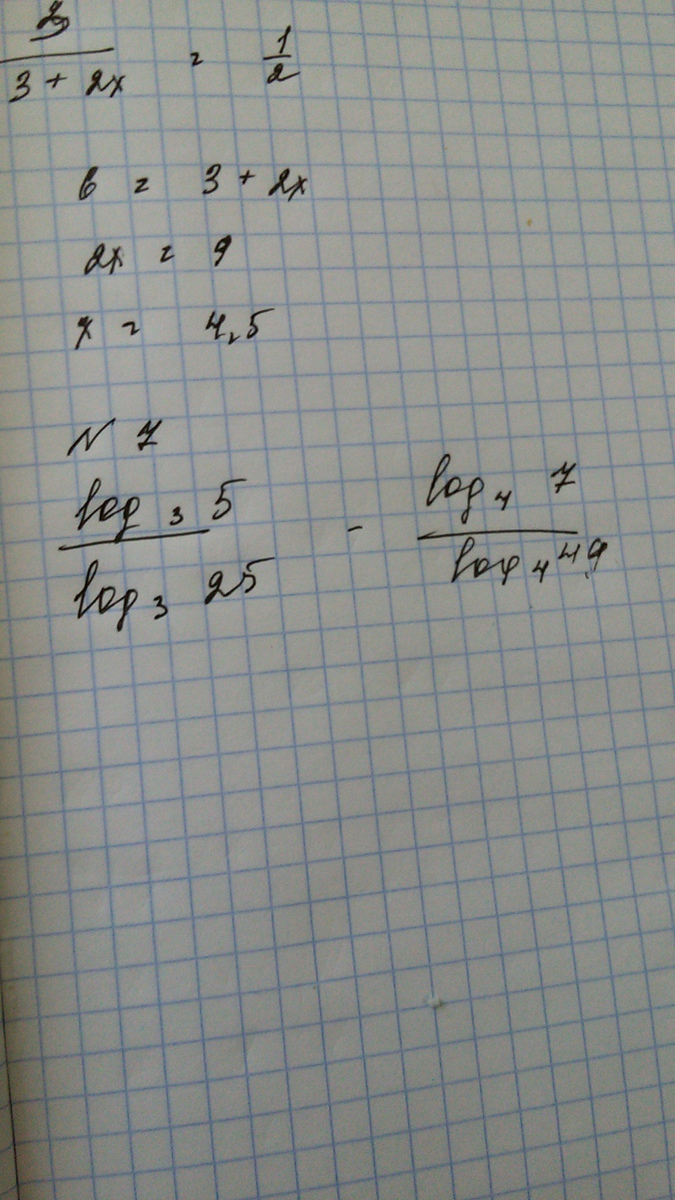 3 + 2x = 1/2
6 = 3 + 2x
2x = 9
x = 4,5
N 7
log₃ 5 / log₃ 25 - log₄ 7 / log₄ 49